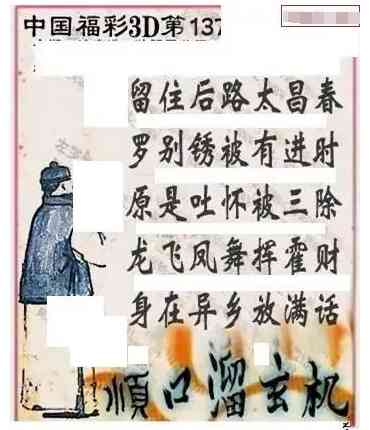 中国福彩3D第137
留住后路太昌春
罗别锈被有进时
原是吐怀被三除
龙飞凤舞挥霍财
身在异乡放满话
顺口溜玄机